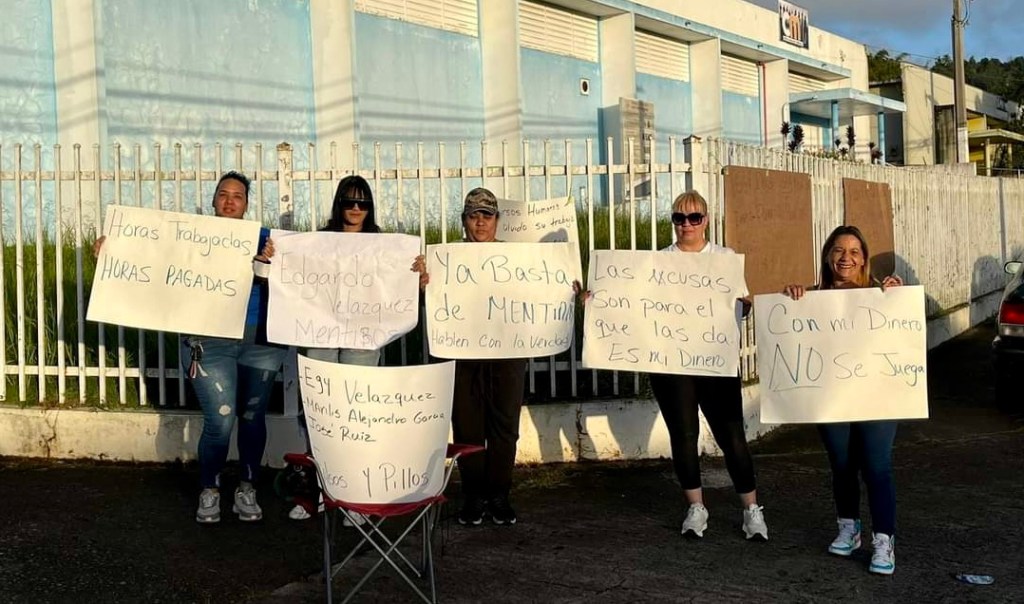 Horas Trabajadas
HORAS PAGADAS
Edgardo
Velazquez
MENTIROS
Ya Basta
de MENTIRA
Hablen Con la Verdad
Humanos
olvido su trabajo
Las excusas
Son para el
que las da.
Es mi Dinero
Con mi Dinero
NO Se Juega
-Egy Velazquez
Alejandro
José Ruiz
Y Pillos